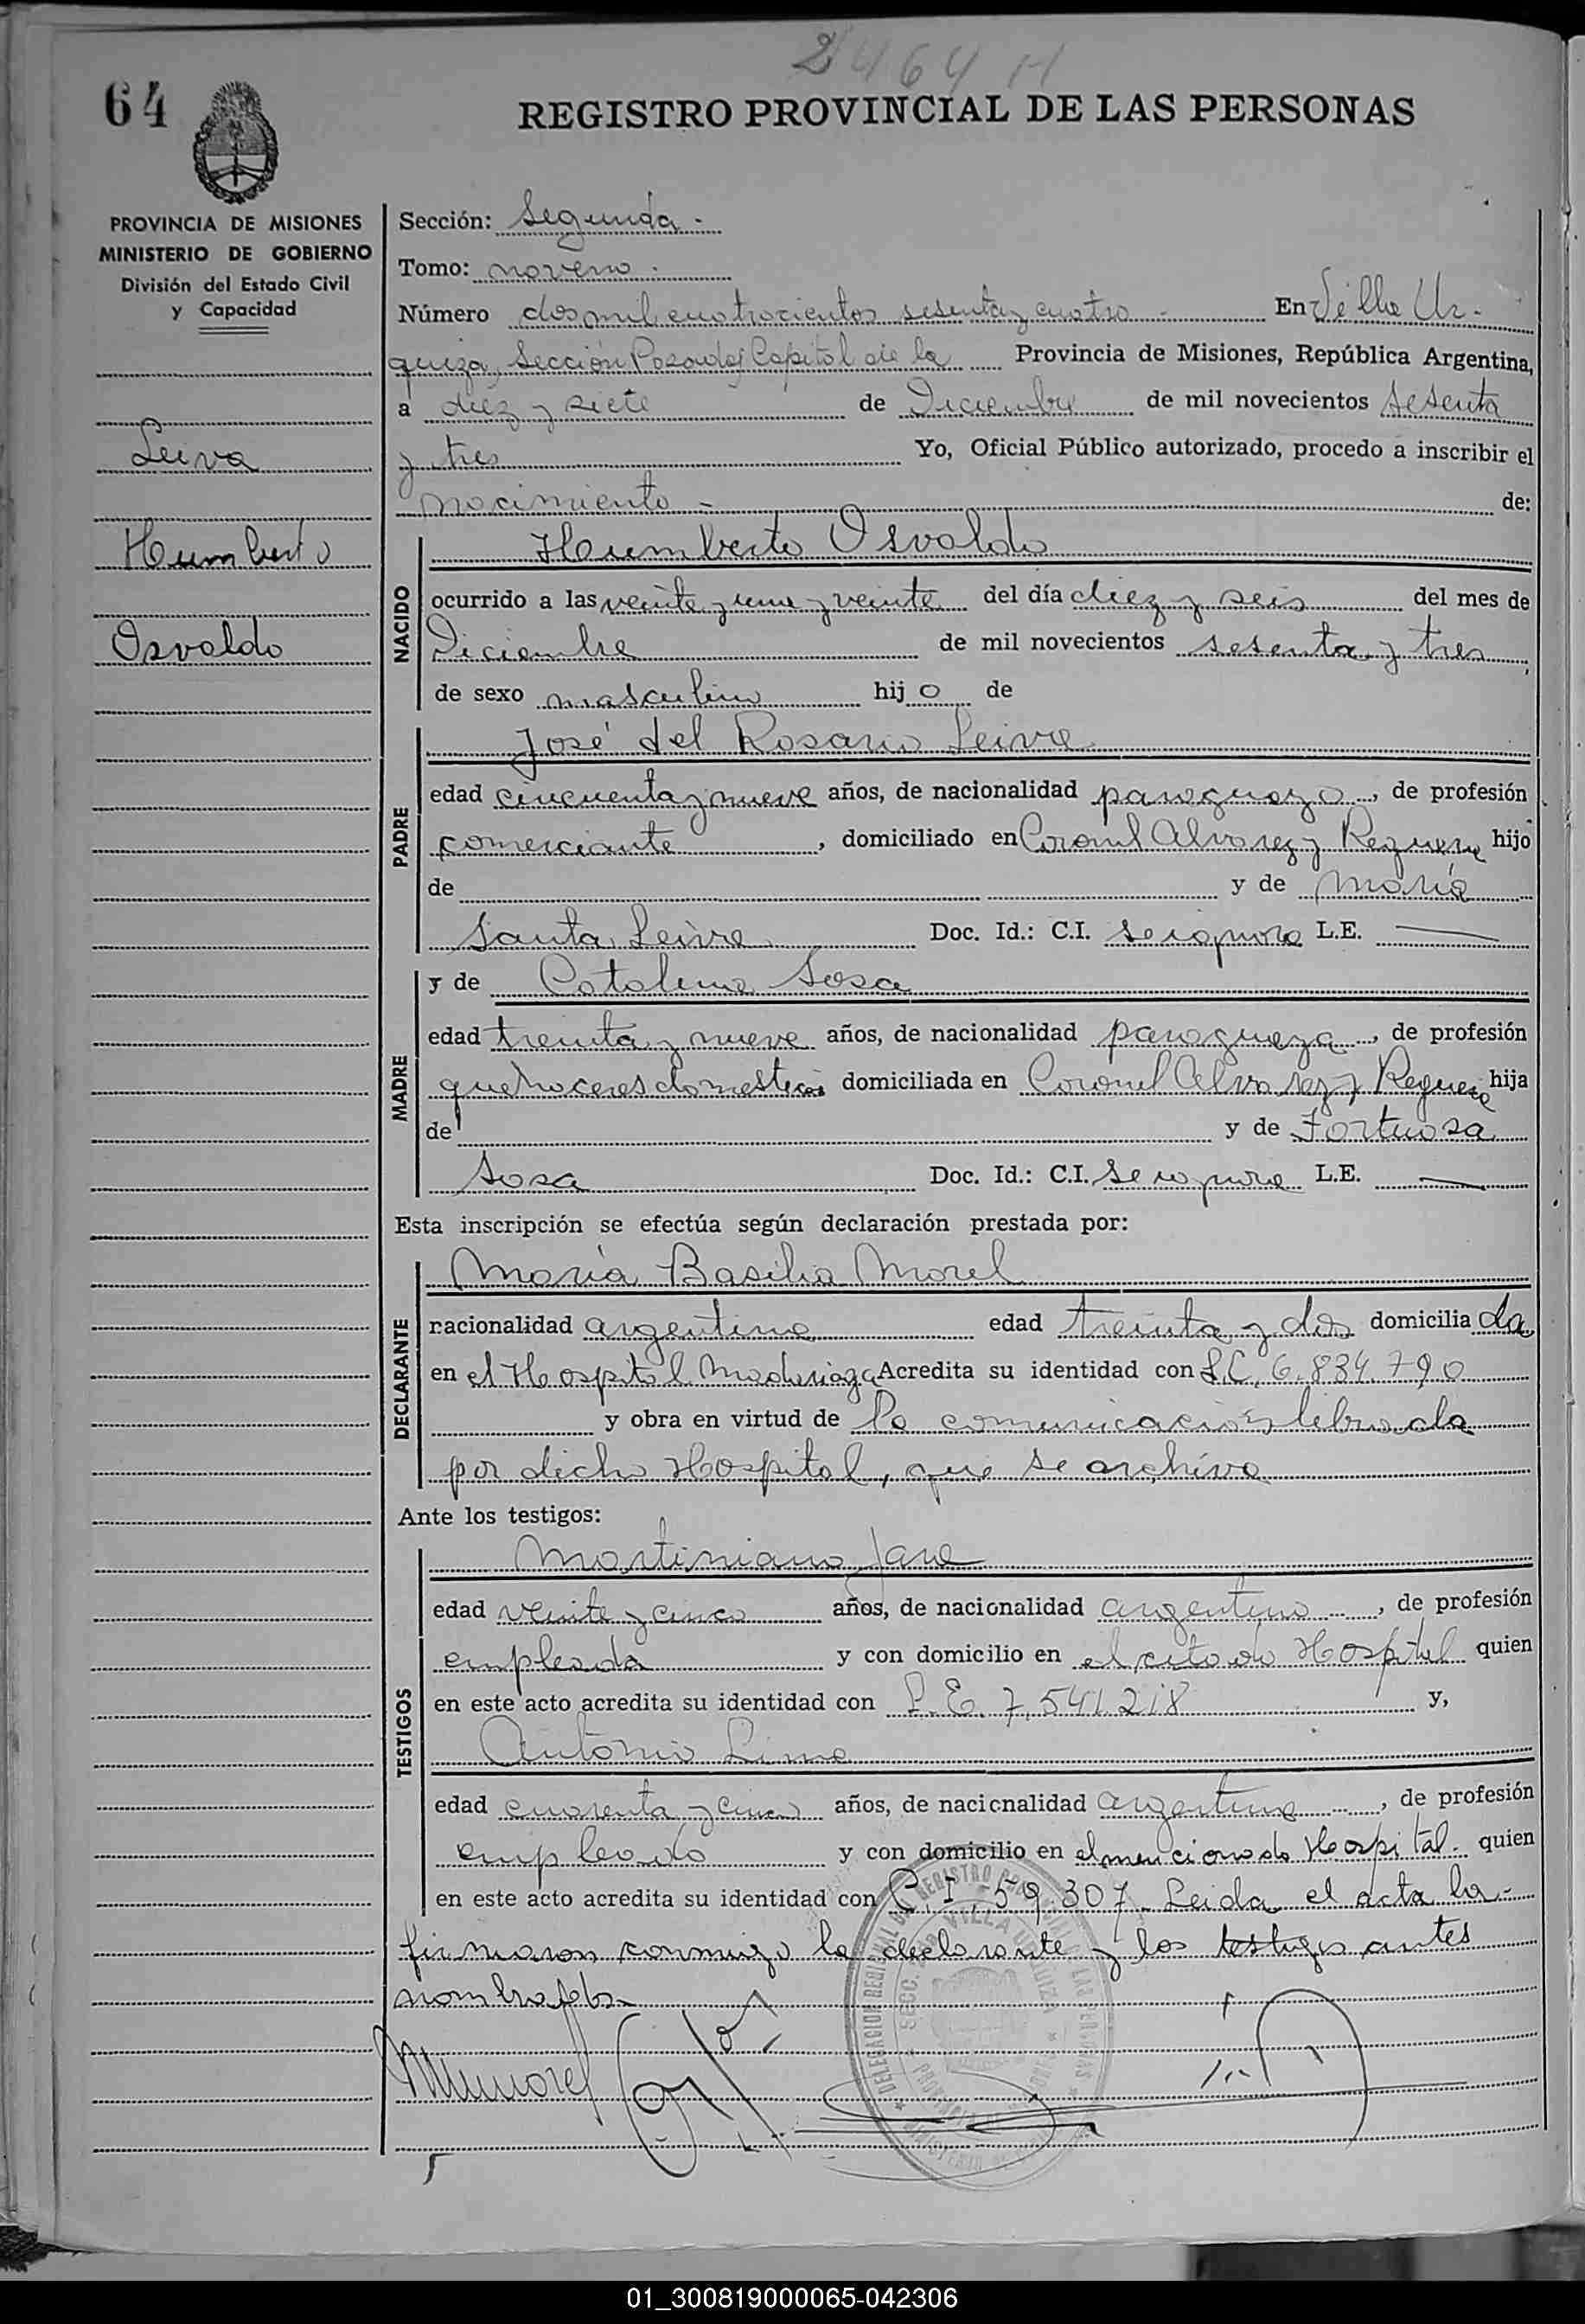 2464 H
64
REGISTRO PROVINCIAL DE LAS PERSONAS
PROVINCIA DE MISIONES
MINISTERIO DE GOBIERNO
División del Estado Civil
y Capacidad
Leiva
Humberto
Osvaldo
Sección: Segunda.-
Tomo: noveno.
Número dos mil cuatrocientos sesenta y cuatro - En Villa Ur-
quiza, Sección Posadas Capital de la Provincia de Misiones, República Argentina,
a diez y siete de Diciembre de mil novecientos sesenta
y tres Yo, Oficial Público autorizado, procedo a inscribir el
nacimiento - de:
NACIDO
Humberto Osvaldo
ocurrido a las veinte y una y veinte del día diez y seis del mes de
Diciembre de mil novecientos sesenta y tres,
de sexo masculino hijo de
PADRE
José del Rosario Leiva
edad cincuenta y nueve años, de nacionalidad paraguayo, de profesión
comerciante, domiciliado en Coronel Alvarez y Reguera hijo
de y de María
Santa Leiva Doc. Id.: C.I. se ignora L.E. ——
MADRE
y de Catalina Sosa
edad treinta y nueve años, de nacionalidad paraguaya, de profesión
quehaceres domesticos domiciliada en Coronel Alvarez y Reguera hija
de y de Fortuosa
Sosa Doc. Id.: C.I. se ignora L.E. ——
Esta inscripción se efectúa según declaración prestada por:
DECLARANTE
María Basilia Morel
nacionalidad argentina edad treinta y dos domiciliada
en el Hospital Madariaga Acredita su identidad con L.C. 6.834.790
y obra en virtud de la comunicación librada
por dicho Hospital, que se archiva
Ante los testigos:
TESTIGOS
Martiniano Jara
edad veinte y cinco años, de nacionalidad argentino, de profesión
empleado y con domicilio en el citado Hospital quien
en este acto acredita su identidad con L.E. 7.541.218 y,
Antonio Lima
edad cuarenta y cinco años, de nacionalidad argentino, de profesión
empleado y con domicilio en el mencionado Hospital. quien
en este acto acredita su identidad con C.I. 59.307. Leida el acta la-
firmaron conmigo la declarante y los testigos antes
nombrados.-
MMorel
DELEGACION REGIONAL DEL REGISTRO PROVINCIAL DE LAS PERSONAS
SECC. 2DA. VILLA URQUIZA
01_300819000065-042306